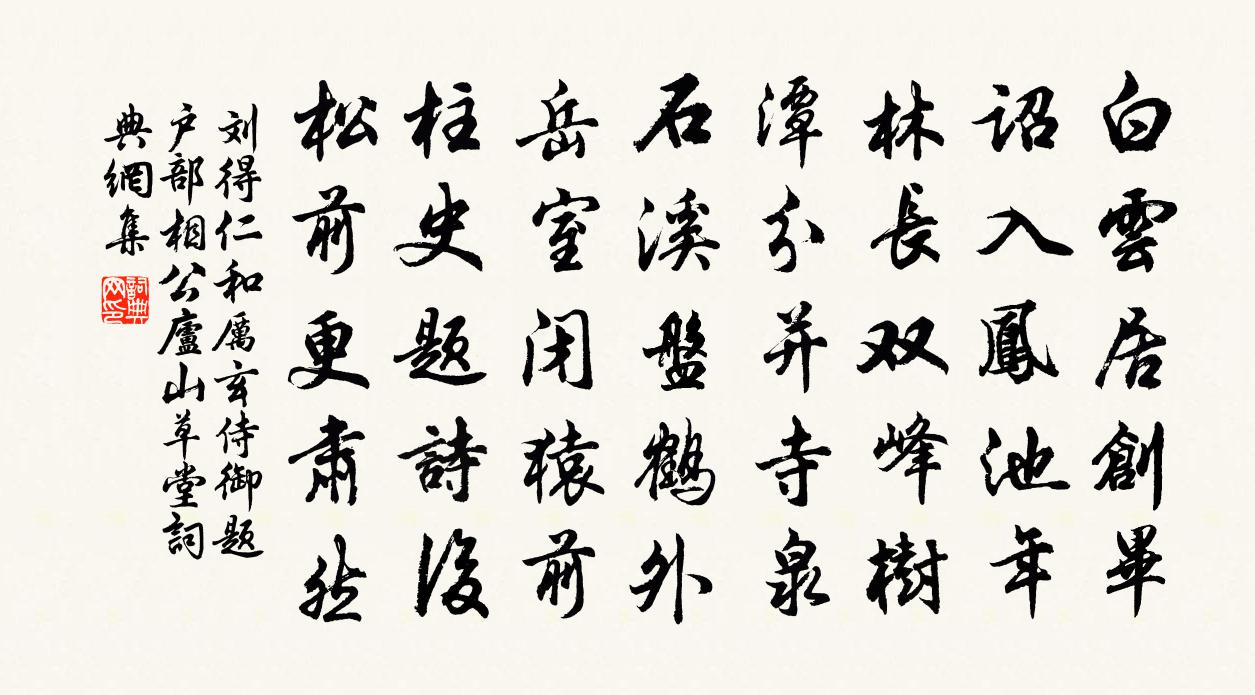 白雲居創畢
詔入鳳池年
林長双峰樹
潭分并寺泉
石溪盤鶴外
岳室闭猿前
柱史題詩後
松前更肅然
刘得仁和厲玄侍御題
户部相公廬山草堂詞
典網集
詞典
网印